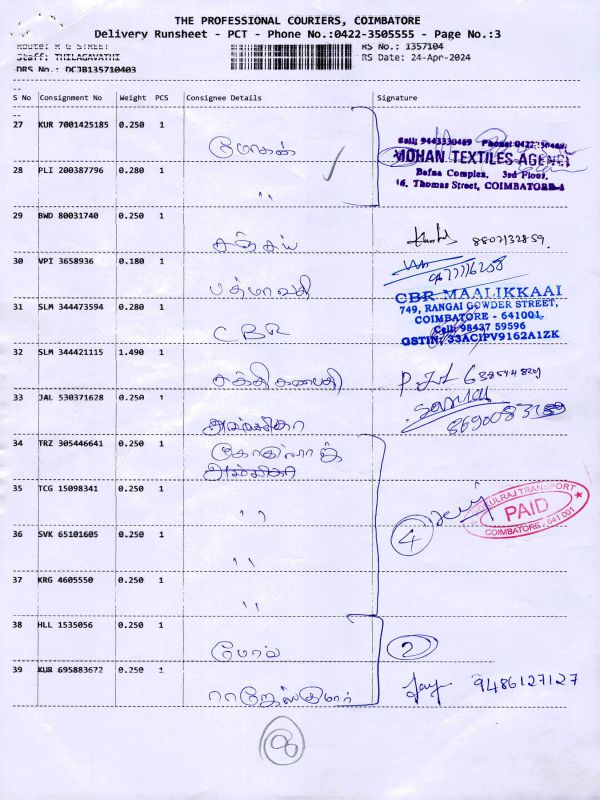 THE PROFESSIONAL COURIERS, COIMBATORE
Delivery Runsheet - PCT - Phone No.:0422-3505555 - Page No.:3
Route: R G STREET
RS No.: 1357104
Staff: THILAGAVATHI
RS Date: 24-Apr-2024
DRS No.: DCJB135710403
S No Consignment No Weight PCS Consignee Details Signature
27 KUR 7001425185 0.250 1
மோகன்
Cell: 9443330469
MOHAN TEXTILES AGENCY
Bafna Complex, 3rd Floor,
16, Thomas Street, COIMBATORE-1
28 PLI 200387796 0.280 1
,,
29 BWD 80031740 0.250 1
சஞ்சய்
8807132859.
30 VPI 3658936 0.180 1
பத்மாவதி
CBR MAALIKKAAI
749, RANGAI GOWDER STREET,
COIMBATORE - 641001.
Cell: 98437 59596
GSTIN: 33ACIPV9162A1ZK
31 SLM 344473594 0.280 1
CBR
32 SLM 344421115 1.490 1
சக்திகணபதி
33 JAL 530371628 0.250 1
34 TRZ 305446641 0.250 1
35 TCG 15098341 0.250 1
,,
PAID
COIMBATORE - 641 001
4
36 SVK 65101605 0.250 1
,,
37 KRG 4605550 0.250 1
,,
38 HLL 1535056 0.250 1
2
39 KUR 695883672 0.250 1
ராஜேஸ்குமார்
9486127127